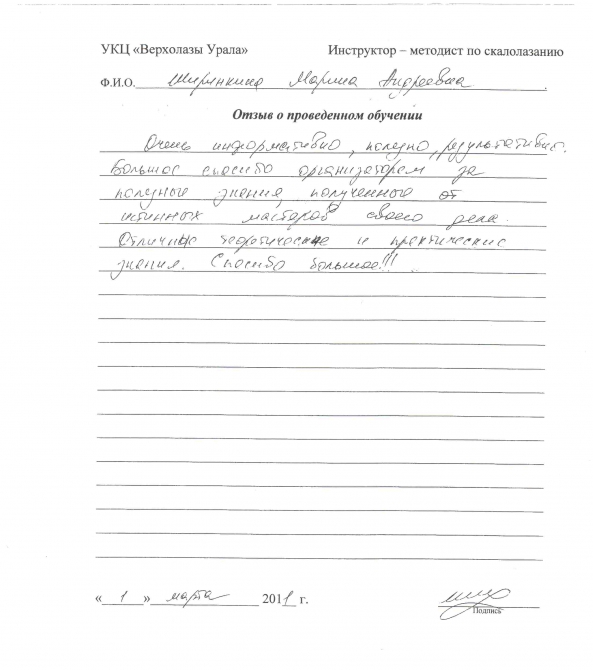 УКЦ «Верхолазы Урала» Инструктор – методист по скалолазанию
Ф.И.О. Ширинкина Марина Андреевна .
Отзыв о проведенном обучении
Очень информативно, полезно, результативно.
Большое спасибо организаторам за
полезные знания, полученные от
истинных мастеров своего дела.
Отличные теоретические и практические
знания. Спасибо большое!!!
« 1 » марта 2011 г.
Подпись